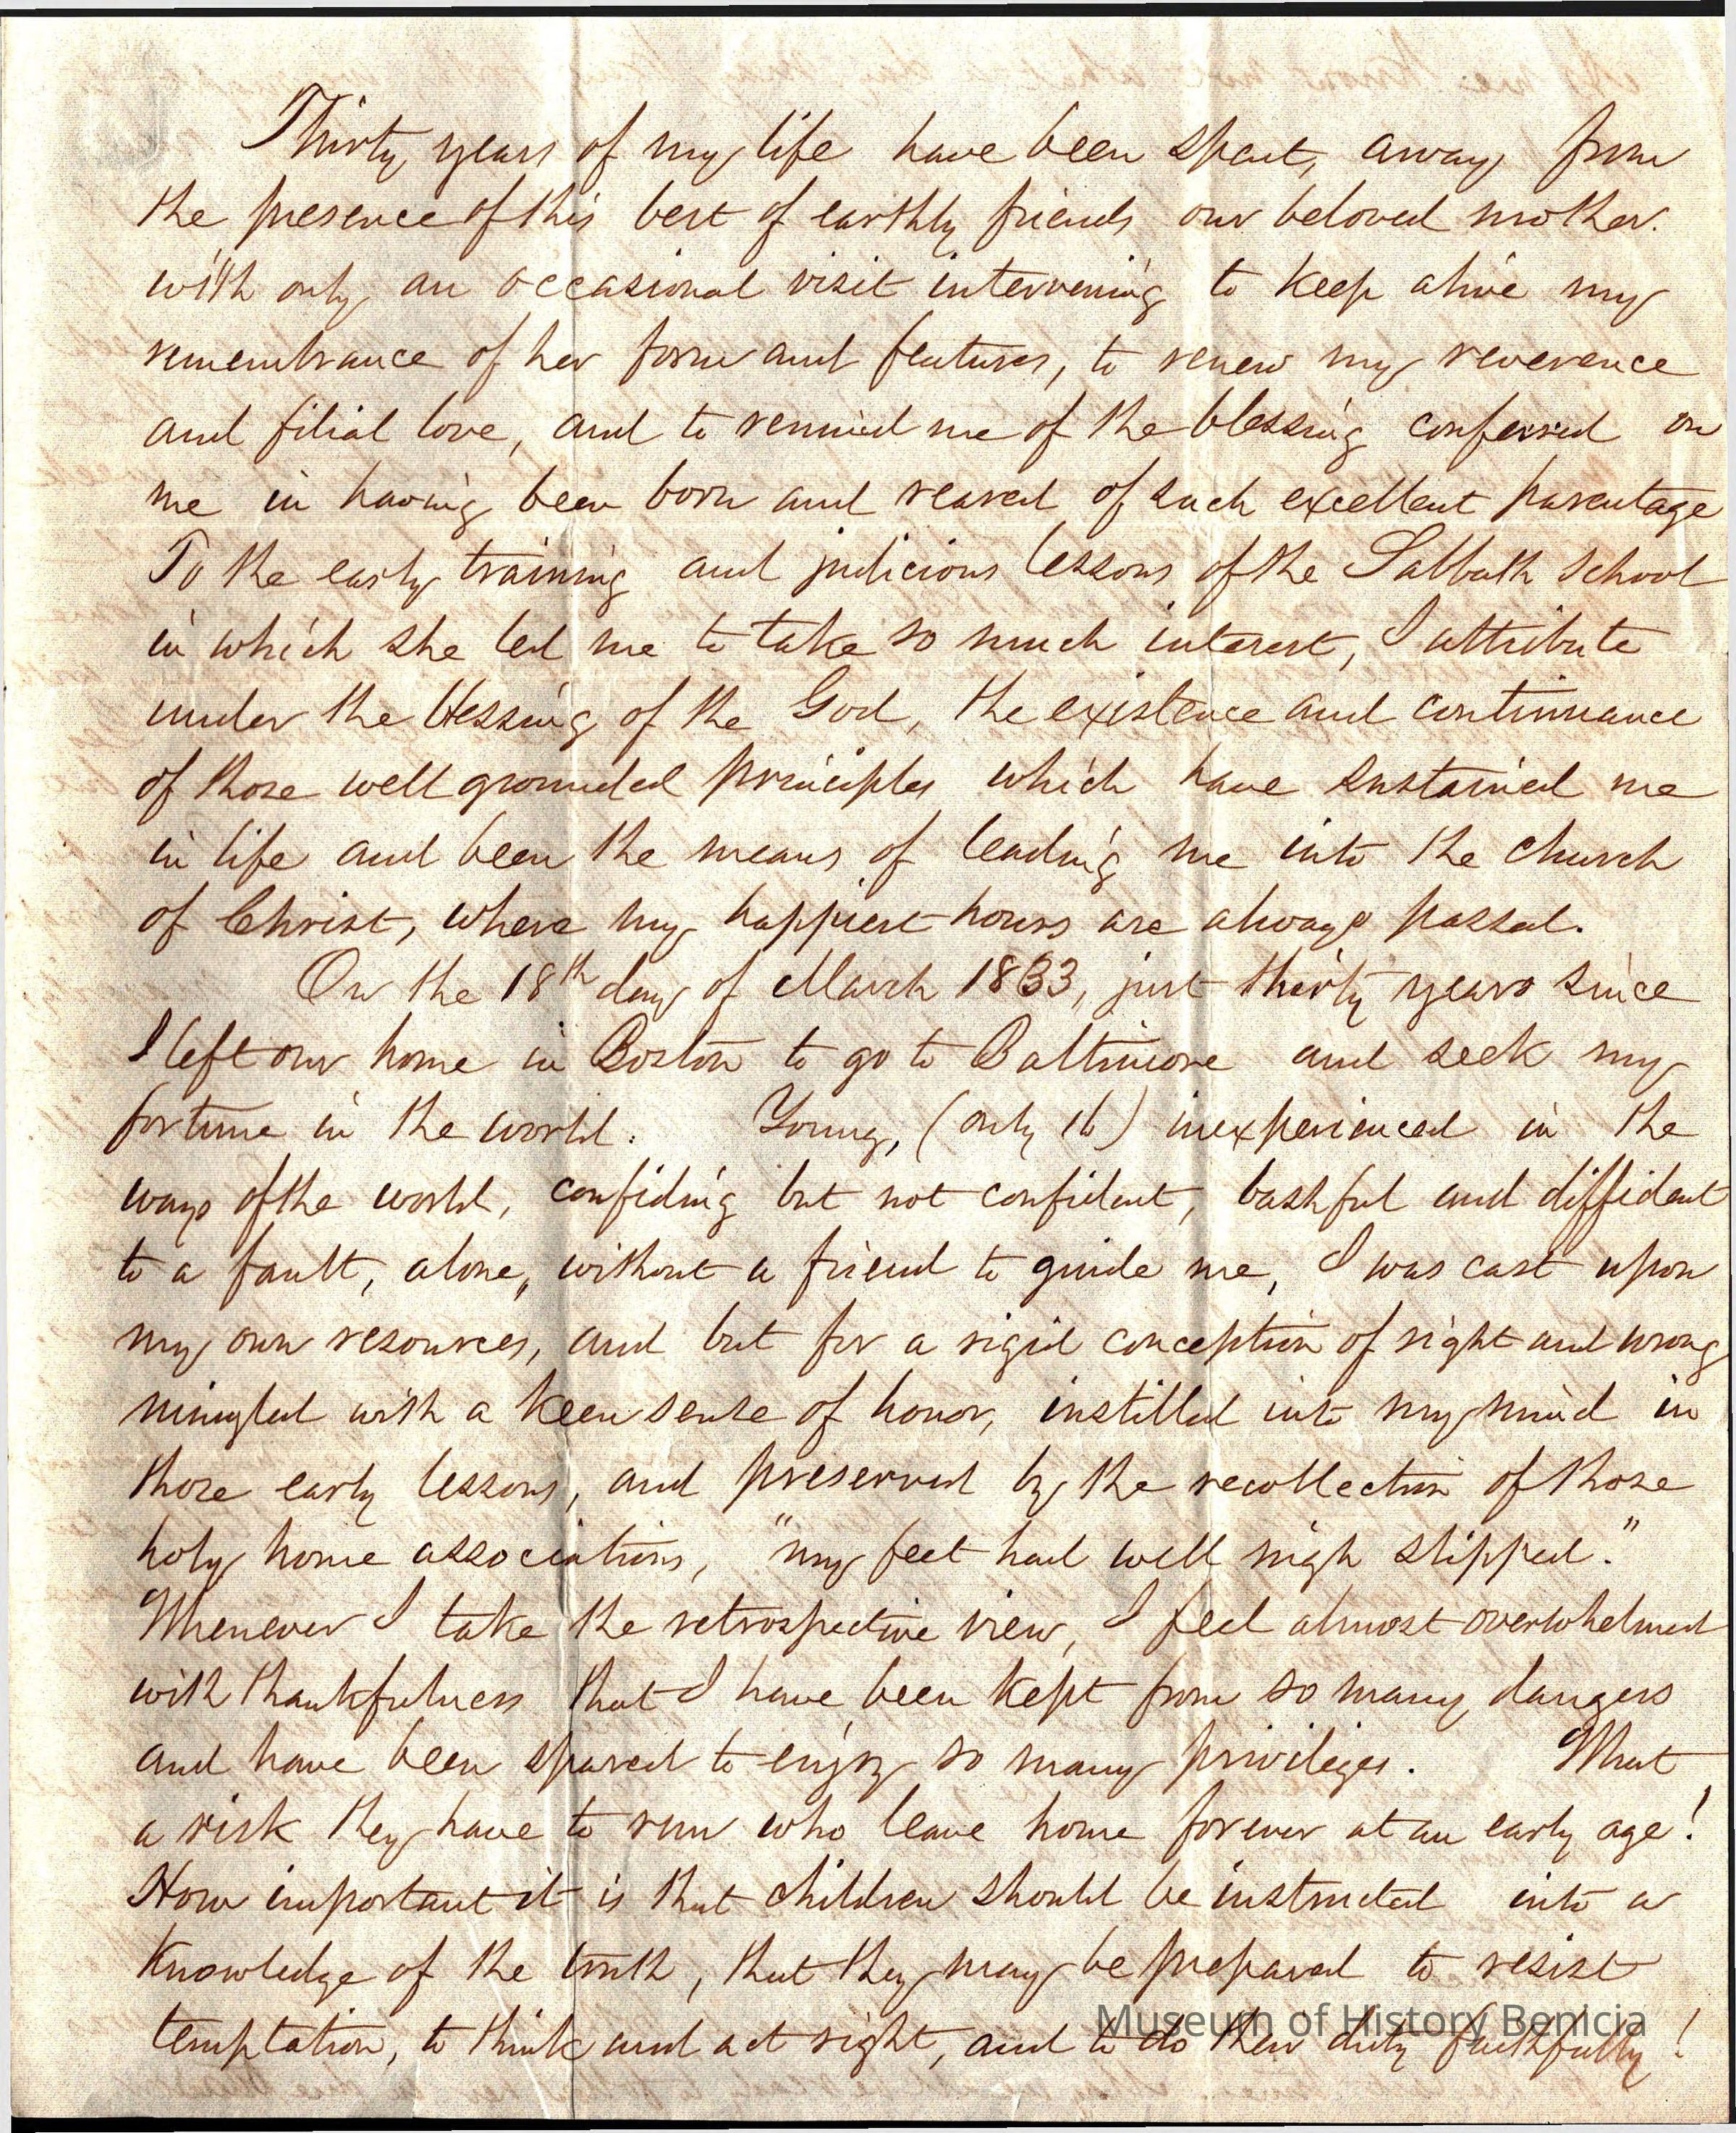 Thirty years of my life have been spent, away from
the presence of this best of earthly friends our beloved mother.
with only an occasional visit intervening to keep alive my
remembrance of her form and features, to renew my reverence
and filial love, and to remind me of the blessing conferred on
me in having been born and reared of such excellent parentage
To the early training and judicious lessons of the Sabbath School
in which she led me to take so much interest, I attribute
under the blessing of the God, the existence and continuance
of those well grounded principles which have sustained me
in life and been the means of leading me into the church
of Christ, where my happiest hours are always passed.
On the 18th day of March 1833, just thirty years since
I left our home in Boston to go to Baltimore and seek my
fortune in the world. Young, (only 16) inexperienced in the
ways of the world, confiding but not confident, bashful and diffident
to a fault, alone, without a friend to guide me, I was cast upon
my own resources, and but for a rigid conception of right and wrong
mingled with a keen sense of honor, instilled into my mind in
those early lessons, and preserved by the recollection of those
holy home associations, "my feet had well nigh slipped."
Whenever I take the retrospective view, I feel almost overwhelmed
with thankfulness that I have been kept from so many dangers
and have been spared to enjoy so many privileges. What
a risk they have to run who leave home forever at an early age!
How important it is that children should be instructed into a
knowledge of the truth, that they may be prepared to resist
temptation, to think and act right, and to do their duty faithfully!
Museum of History Benicia